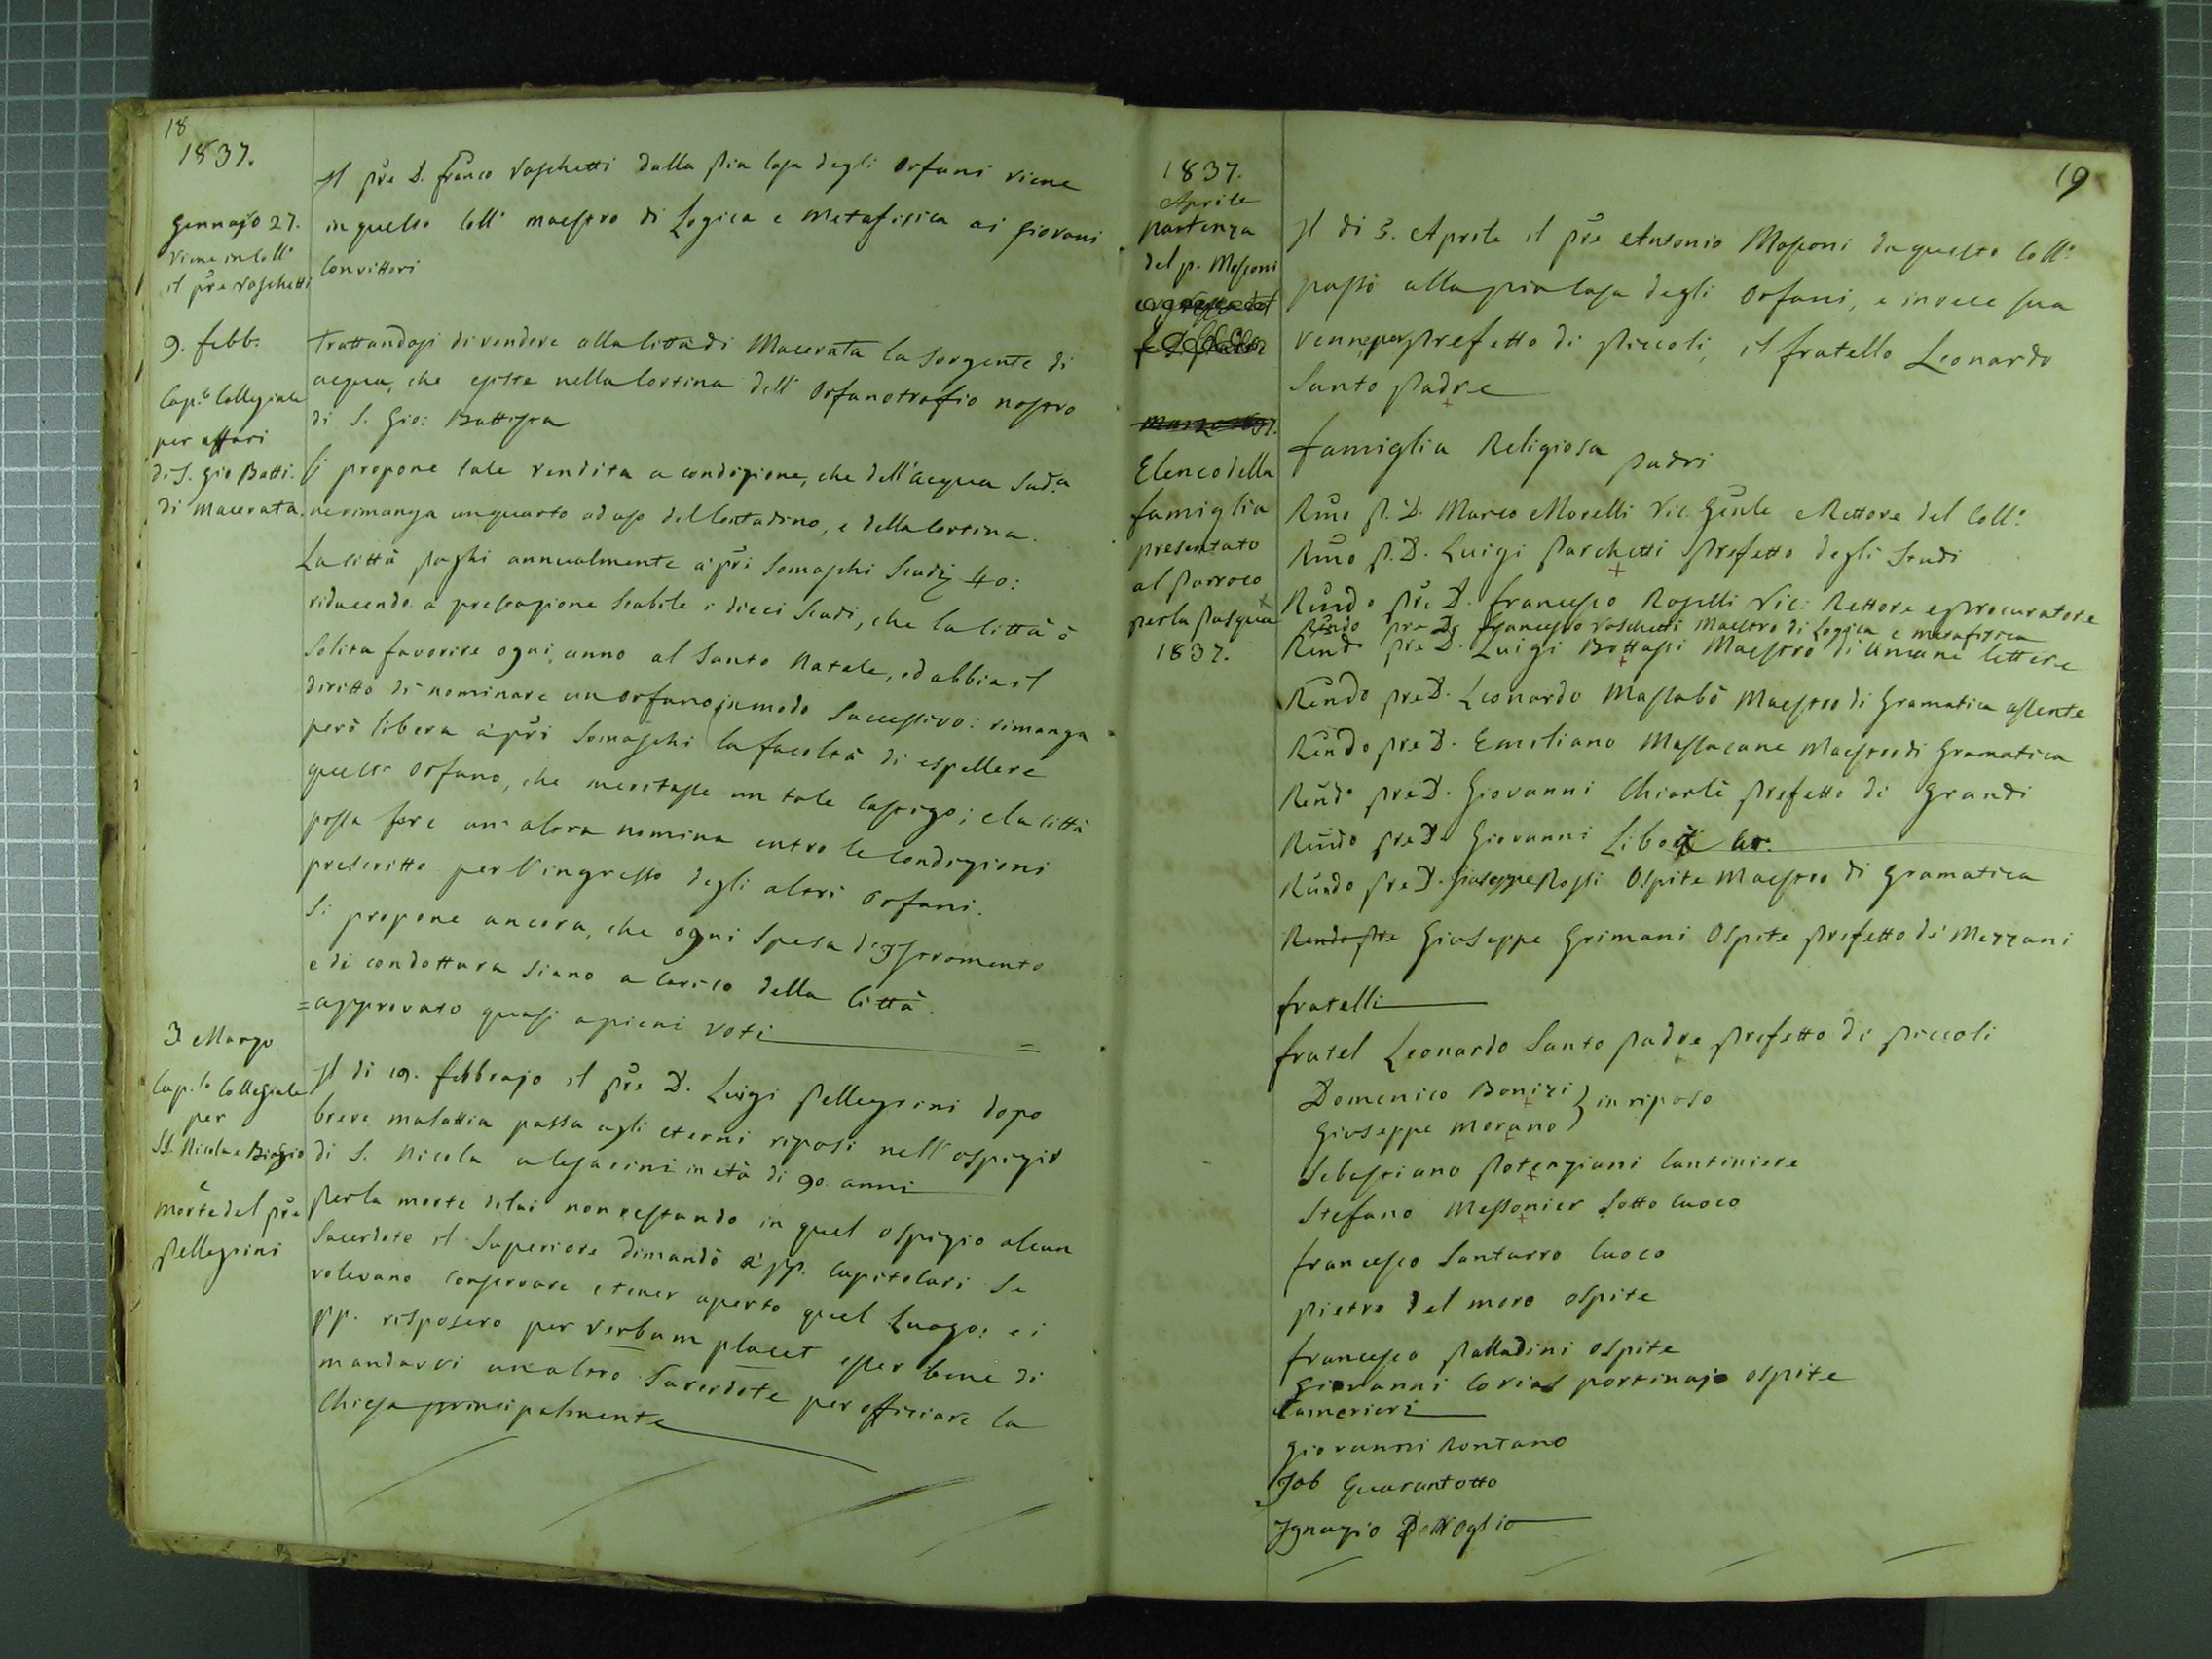 18
1837.
Gennajo 27.
Viene in Coll.o
il p̃re Vaschetti
Il p̃re D. Franco Vaschetti dalla Pia Casa degli Orfani viene
in questo Coll.o maestro di Logica e Metafisica ai giovani
Convittori
9. febb.
Cap.o Collegiale
per affari
di S. Gio Batti.
di Macerata.
Trattandosi di vendere alla Città di Macerata la Sorgente di
acqua, che esiste nella Cortina dell' Orfanotrofio nostro
di S. Gio: Battista
Si propone tale vendita a condizione, che dell'acqua Sud.a
ne rimanga un quarto ad uso del Contadino, e della Cortina.
La Città paghi annualmente a' p̃ri Somaschi Scudi 40:
riducendo a prestazione Stabile i dieci Scudi, che la Città è
Solita favorire ogni anno al Santo Natale, ed abbia il
diritto di nominare un Orfano in modo Successivo: rimanga
però libera a' p̃ri Somaschi la facoltà di espellere
quell' Orfano, che meritasse un tale Castigo; e la Città
possa fare un' altra nomina entro le Condizioni
prescritte per l'ingresso degli altri Orfani.
Si propone ancora, che ogni Spesa d'Istromento
e di condottura siano a Carico della Città.
= approvato quasi a pieni Voti =
3 Marzo
Cap.lo Collegiale
per
SS. Nicola e Biagio
Morte del p̃re
Pellegrini
Il di 19. febbrajo il p̃re D. Luigi Pellegrini dopo
breve malattia passa agli eterni riposi nell' ospizio
di S. Nicola a Cesarini in età di 90. anni
Per la morte di lui non restando in quel Ospizio alcun
Sacerdote il Superiore dimandò a' pp. Capitolari Se
volevano conservare e tener aperto quel Luogo: e i
pp. risposero per verbum placet esser bene di
mandarvi un altro Sacerdote per officiare la
Chiesa principalmente
19
1837.
Aprile
partenza
del p. Mosconi
Il di 3. Aprile il p̃re Antonio Mosconi da questo Coll.o
passò alla pia Casa degli Orfani, e in vece sua
venne per Prefetto di Piccoli, il fratello Leonardo
Santo Padre
Elenco della
famiglia
presentato
al Parroco
per la Pasqua
1837.
famiglia Religiosa
Padri
Rm̃o P. D. Marco Morelli Vic. Gen̂le e Rettore del Coll.o
Rm̃o P. D. Luigi Parchetti Prefetto degli Studi
Rũndo p̃re D. Francesco Roselli Vic: Rettore e Procuratore
Rũndo p̃re D. Francesco Vaschetti Maestro di Logica e Metafisica
Rũndo p̃re D. Luigi Bottassi Maestro di Umane lettere
Rũndo p̃re D. Leonardo Massabò Maestro di Gramatica assente
Rũndo p̃re D. Emiliano Massacane Maestro di Gramatica
Rũndo p̃re D. Giovanni Chiarlè Prefetto di Grandi
Rũndo p̃re D. Giovanni
Rũndo p̃re D. Giuseppe Rossi Ospite Maestro di Gramatica
Rendo p̃re Giuseppe Grimani Ospite Prefetto de' Mezzani
fratelli
fratel Leonardo Santo Padre Prefetto di piccoli
Domenico Bonizi } in riposo
Giuseppe Morano
Sebastiano Potenziani Cantiniere
Stefano Messonier Sotto Cuoco
Francesco Santarro Cuoco
Pietro del moro Ospite
Francesco Palladini Ospite
Giovanni Corias portinajo ospite
Camerieri
Giovanni Rontano
Job Quarantotto
Ignazio